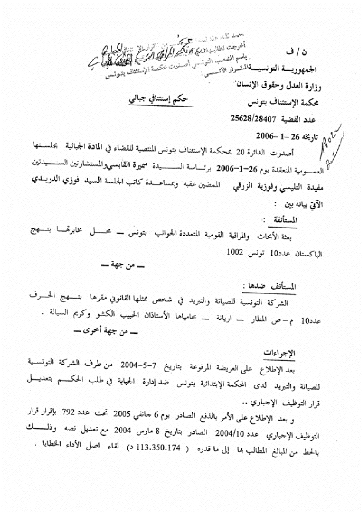 ن / ف
الجمهورية التونسية
وزارة العدل وحقوق الإنسان
محكمة الإستئناف بتونس
حكم إستئنافي جبائي
عدد القضية 25628/28407
تاريخه 26-1-2006
أصدرت الدائرة 20 بمحكمة الإستئناف بتونس المنتصبة للقضاء في المادة الجبائية بجلستها
العمومية المنعقدة يوم 26-1-2006 برئاسة السيدة سميرة القابسي والمستشارتين السيدتين
مفيدة التليسي وفوزية الزواقي الممضين عقبه وبمساعدة كاتب الجلسة السيد فوزي الدريدي
الآتي بيانه بين :
المستأنفة :
بعثة الأبحاث والمراقبة القومية المتعددة الجوانب بتونس – محل مخابرتها بنهج
الباكستان عدد 10 تونس 1002
– من جهة –
المستأنف ضدها :
الشركة التونسية للصيانة والتبريد في شخص ممثلها القانوني مقرها بنهج الحرف
عدد10 م-ص المطار – اريانة – محامياها الأستاذان الحبيب الكشو وكريم السيالة .
– من جهة أخرى –
الإجراءات
بعد الإطلاع على العريضة المرفوعة بتاريخ 7-5-2004 من طرف الشركة التونسية
للصيانة والتبريد لدى المحكمة الإبتدائية بتونس ضد إدارة الجباية في طلب الحكم بتعديل
قرار التوظيف الإجباري ..
و بعد الإطلاع على الأمر بالدفع الصادر يوم 6 جانفي 2005 تحت عدد 792 بإقرار قرار
التوظيف الإجباري عدد 2004/10 الصادر بتاريخ 8 مارس 2004 مع تعديل نصه وذلك
بالحط من المبالغ المطالب بها إلى ما قدره ( 113.350.174 د) لقاء اصل الأداء الخطايا .